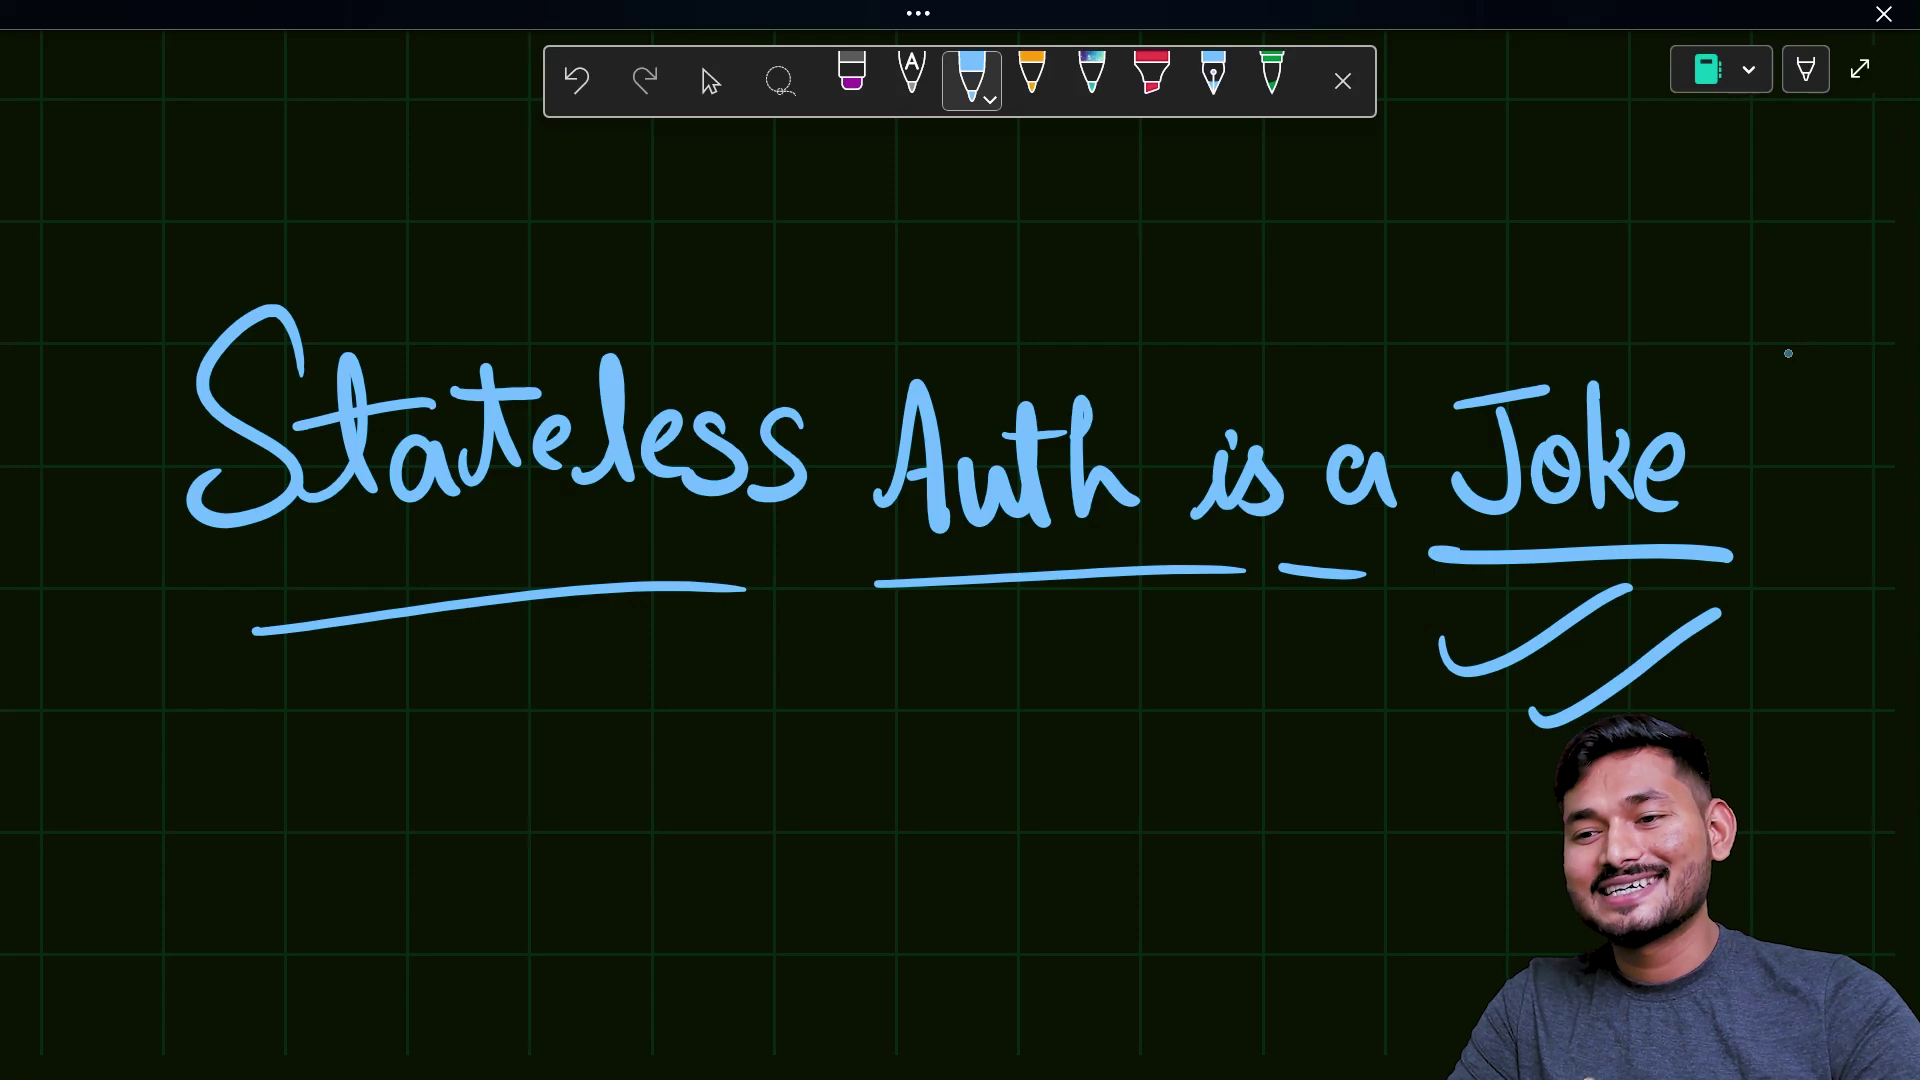 Stateless Auth is a Joke